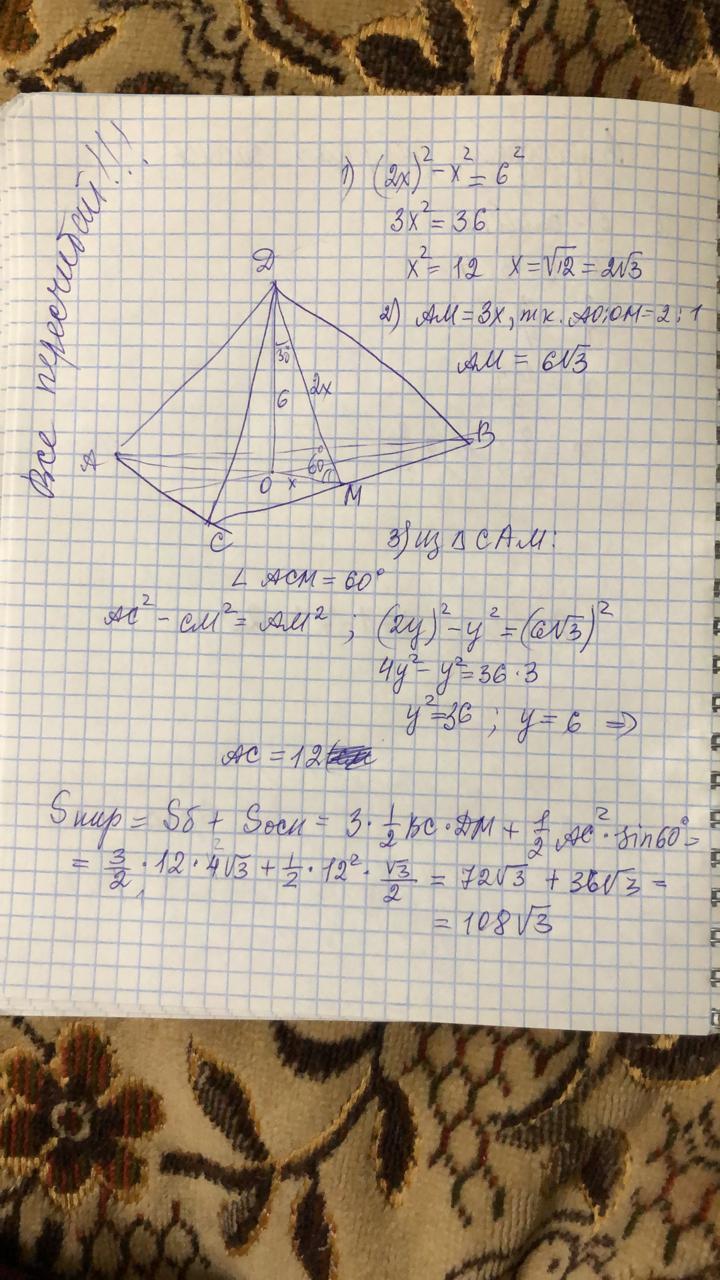 Все пересчитай!!!
1) (2x)² - x² = 6²
3x² = 36
x² = 12 x = √12 = 2√3
2) AM = 3x, т.к. AO:OM = 2:1
AM = 6√3
D
30°
6
2x
60°
A
B
O
x
M
C
3) Из Δ CAM:
∠ ACM = 60°
AC² - CM² = AM² ; (2y)² - y² = (6√3)²
4y² - y² = 36·3
y² = 36 ; y = 6 ⇒
AC = 12
Sпир = Sб + Sосн = 3·½ BC·DM + ½ AC²·sin60° =
= 3/2·12·4√3 + ½·12²·√3/2 = 72√3 + 36√3 =
= 108√3